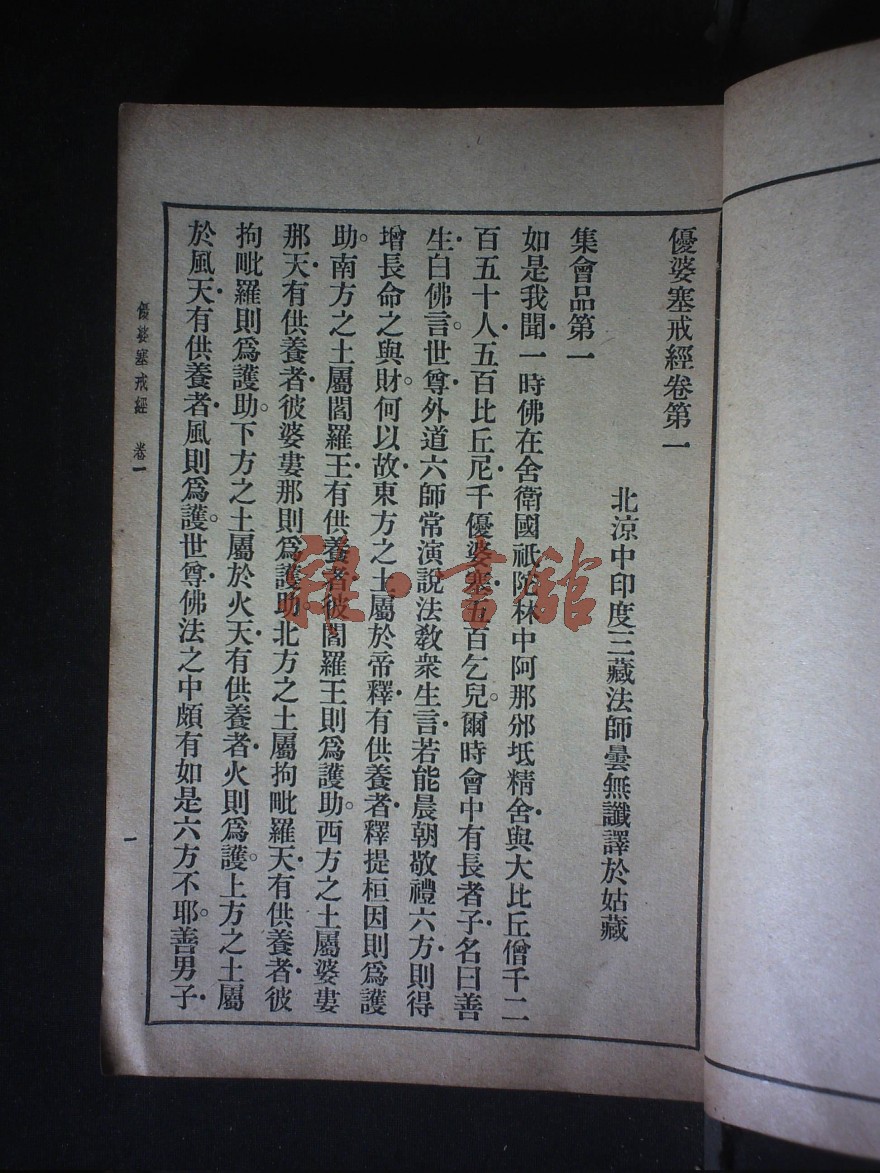 優婆塞戒經卷第一
北涼中印度三藏法師曇無讖譯於姑藏
集會品第一
如是我聞一時佛在舍衛國祇陀林中阿那邠坻精舍與大比丘僧千二
百五十人五百比丘尼千優婆塞五百乞兒。爾時會中有長者子名曰善
生白佛言。世尊外道六師常演說法教衆生言若能晨朝敬禮六方則得
增長命之與財。何以故東方之土屬於帝釋有供養者釋提桓因則爲護
助。南方之土屬閻羅王有供養者彼閻羅王則爲護助。西方之土屬婆婁
那天有供養者彼婆婁那則爲護助北方之土屬拘毗羅天有供養者彼
拘毗羅則爲護助。下方之土屬於火天有供養者火則爲護。上方之土屬
於風天有供養者風則爲護。世尊佛法之中頗有如是六方不耶。善男子
優婆塞戒經 卷一
一
雜·書館